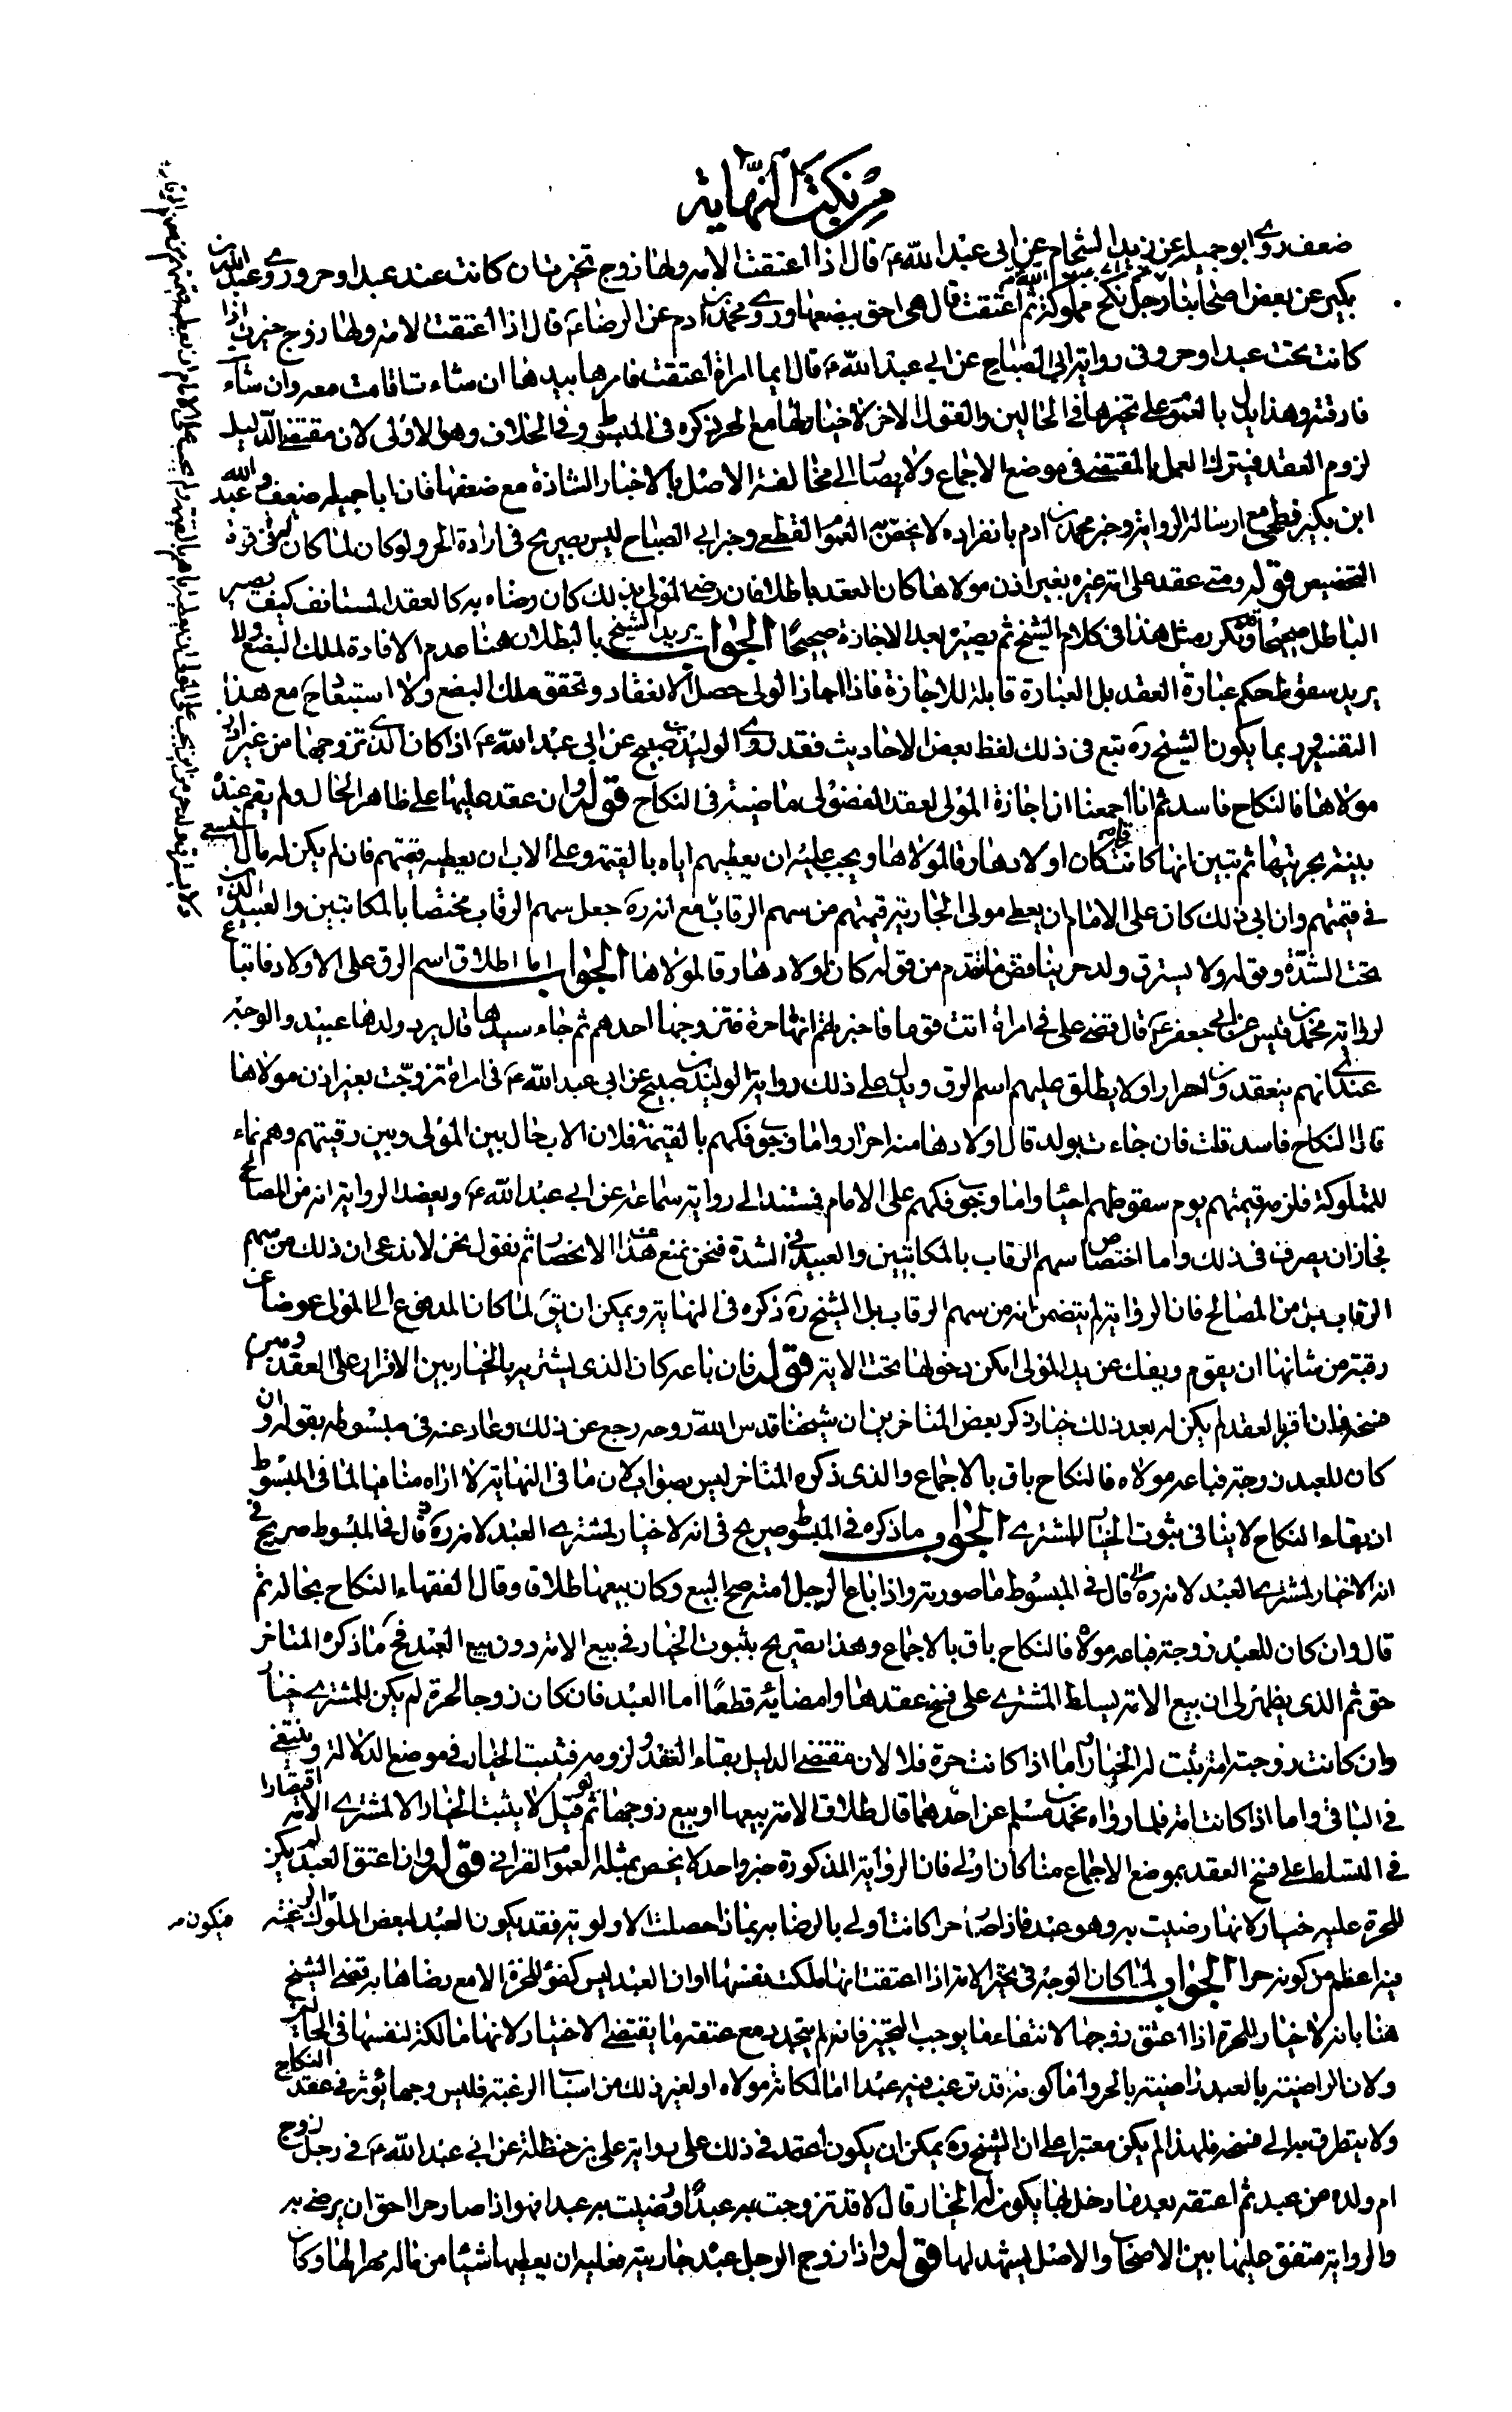 من نكت النهاية
ضعف روى ابو جميلة عن زيد الشحام عن ابى عبد الله ع قال اذا اعتقت الامة ولها زوج تخير ان كانت عند عبد او حر وروى عبد الله بن
بكير عن بعض اصحابنا رجل نكح مملوكة ثم اعتقت قال هى احق ببضعها وروى محمد بن ادم عن الرضا ع قال اذا اعتقت الامة ولها زوج خيرت اذا
كانت تحت عبد او حر وفى رواية ابى الصباح عن ابى عبد الله ع قال ايما امراة اعتقت فامرها بيدها ان شاءت اقامت معه وان شاءت
فارقته وهذا يدل بالعموم على تخيرها فى الحالين والقول الاخر لا خيار لها مع الحر ذكره فى المبسوط وفى الخلاف وهو الاولى لان مقتضى الدليل
لزوم العقد فيترك العمل بالمقتضى فى موضع الاجماع ولا يصار الى مخالفة الاصل بالاخبار الشاذة مع ضعفها فان ابا جميلة ضعيف وعبد الله
ابن بكير فطحى مع ارسال الرواية وخبر محمد بن ادم بانفراده لا يخص به العموم القطعى وخبر ابى الصباح ليس بصريح فى ارادة الحر ولو كان لما كان فى قوة
التخصيص قوله ومتى عقد على امة غيره بغير اذن مولاها كان العقد باطلا فان رضى المولى بذلك كان رضاه به كالعقد المستانف كيف يصير
الباطل صحيحا وقد تكرر مثل هذا فى كلام الشيخ ثم يصيره بعد الاجازة صحيحا الجواب يريد الشيخ بالبطلان هنا عدم الافادة لملك البضع ولا
يريد سقوط حكم عبارة العقد بل العبارة قابلة للاجازة فاذا اجاز الولى حصل الانعقاد وتحقق ملك البضع ولا استبعاد مع هذا
التفسير وربما يكون الشيخ ره تبع فى ذلك لفظ بعض الاحاديث فقد روى الوليد بن صبيح عن ابى عبد الله ع اذا كان الذى تزوجها من غير اذن
مولاها فالنكاح فاسد ثم انا اجمعنا ان اجازة المولى لعقد الفضولى ماضية فى النكاح قوله وان عقد عليها على ظاهر الحال ولم يقم عنده
بينة بحريتها ثم تبين انها كانت كان اولادها رقا لمولاها ويجب عليه ان يعطيهم اياه بالقيمة وعلى الاب ان يعطيه قيمتهم فان لم يكن له مال استسعى
فى قيمتهم وان ابى ذلك كان على الامام ان يعطى مولى الجارية قيمتهم من سهم الرقاب مع انه ره جعل سهم الرقاب مختصا بالمكاتبين والعبيد الذين
تحت الشدة وقوله ولا يسترق ولد حر يناقض ما تقدم من قوله كان اولادها رقا لمولاها الجواب اما اطلاق اسم الرق على الاولاد فاتباع
لرواية محمد بن قيس عن ابى جعفر ع قال قضى على فى امراة اتت قوما فاخبرتهم انها حرة فتزوجها احدهم ثم جاء سيدها قال يرد ولدها عبيد والوجه
عندى انهم ينعقدون احرارا ولا يطلق عليهم اسم الرق ويدل على ذلك رواية الوليد بن صبيح عن ابى عبد الله ع فى امراة تزوجت بغير اذن مولاها
قال النكاح فاسد قلت فان جاءت بولد قال اولادها منه احرار واما وجوب فكهم بالقيمة فلان الاب حال بين المولى وبين رقيتهم وهم نماء
المملوكة فلزمه قيمتهم يوم سقوطهم احيا واما وجوب فكهم على الامام فيستند الى رواية سماعة عن ابى عبد الله ع ويعضد الرواية انه من المصالح
فجاز ان يصرف فى ذلك واما اختصاص سهم الرقاب بالمكاتبين والعبيد فى الشدة فنحن نمنع هذا الاختصاص ثم نقول نحن لا ندعى ان ذلك من سهم
الرقاب بل من المصالح فان الرواية لم يتضمن انه من سهم الرقاب بل الشيخ ره ذكره فى النهاية ويمكن ان يق لما كان المدفوع الى المولى عوضا عن
رقبة من شانها ان يقوم ويفك عن يد المولى امكن دخولها تحت الاية قوله فان باعه كان الذى يشتريه بالخيار بين الاقرار على العقد وبين
فسخه فان اقر العقد لم يكن له بعد ذلك خيار ذكر بعض المتاخرين ان شيخنا قدس الله روحه رجع عن ذلك وعاد عنه فى مبسوطه بقوله وان
كان للعبد زوجة فباعه مولاه فالنكاح باق بالاجماع والذى ذكره المتاخر ليس بصواب لان ما فى النهاية لا اراه منافيا لما فى المبسوط
ان بقاء النكاح لا ينافى ثبوت الخيار للمشترى الجواب ما ذكره فى المبسوط صريح فى انه لا خيار لمشترى العبد لانه ره قال فى المبسوط صريح فى
انه لا خيار لمشترى العبد لانه ره قال فى المبسوط ما صورته واذا باع الرجل امته صح البيع وكان بيعها طلاق وقال الفقهاء النكاح بحاله ثم
قال وان كان للعبد زوجة فباعه مولاه فالنكاح باق بالاجماع وهذا تصريح بثبوت الخيار فى بيع الامة دون بيع العبد فح ما ذكره المتاخر
حق ثم الذى يظهر لى ان بيع الامة يسلط المشترى على فسخ عقدها وامضائه قطعا اما العبد فان كان زوجا لحرة لم يكن للمشترى خيار
وان كانت زوجته امة يثبت له الخيار اما اذا كانت حرة فلا لان مقتضى الدليل بقاء العقد ولزومه فثبت الخيار فى موضع الدلالة وينتفى
فى الباقى واما اذا كانت امة فلما رواه محمد بن مسلم عن احدهما قال طلاق الامة بيعها او بيع زوجها ثم لو قيل لا يثبت الخيار الا لمشترى الامة اقتصارا
فى التسلط على فسخ العقد بموضع الاجماع منا كان اولى فان الرواية المذكورة خبر واحد لا يخص بمثله العموم القرانى قوله وان اعتق العبد لم يكن
للحرة عليه خيار لانها رضيت به وهو عبد فاذا صار حرا كانت اولى بالرضا به بماذا حصلت الاولوية فقد يكون العبد لبعض الملوك الرغبة
فيكون
فيه اعظم من كونه حرا الجواب لما كان الوجه فى تخير الامة اذا اعتقت انها ملكت نفسها او ان العبد ليس كفؤا للحرة الا مع رضاها به قضى الشيخ
هنا بانه لا خيار للحرة اذا اعتق زوجها لانتفاء ما يوجب التخيير فانه لم يتجدد مع عتقه ما يقتضى الاختيار لانها مالكة لنفسها فى الحالين
ولان الراضية بالعبد راضية بالحر واما كونه قد ترغب فيه عبدا اما لمكاثرة مولاه او لغير ذلك من اسباب الرغبة فليس وجها يؤثر فى عقد النكاح
ولا يتطرق به الى فسخه فلهذا لم يكن معتبرا على ان الشيخ ره يمكن ان يكون اعتمد فى ذلك على رواية على بن حنظلة عن ابى عبد الله ع فى رجل زوج
ام ولده من عبد ثم اعتقه بعد ما دخل بها يكون لها الخيار قال لا قد تزوجت به عبدا ورضيت به عبدا فهو اذا صار حرا احق ان يرضى به
والرواية متفق عليها بين الاصحاب والاصل يشهد لها قوله واذا زوج الرجل عبده جاريته فعليه ان يعطيها شيئا من ماله مهرا لها وكان